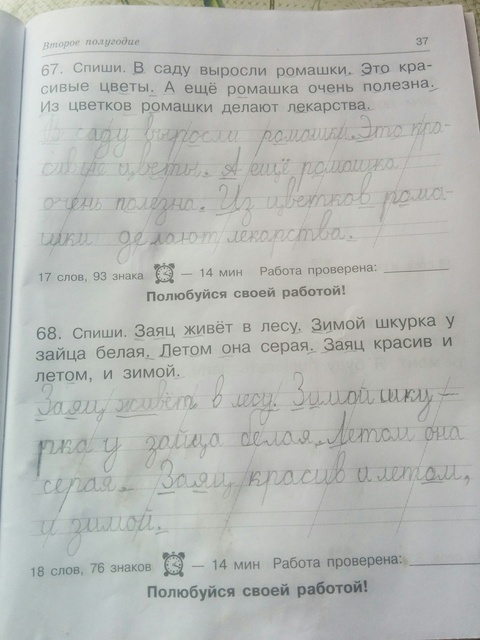 Второе полугодие 37
67. Спиши. В саду выросли ромашки. Это кра-
сивые цветы. А ещё ромашка очень полезна.
Из цветков ромашки делают лекарства.
В саду выросли ромашки. Это кра-
сивые цветы. А ещё ромашка
очень полезна. Из цветков рома-
шки делают лекарства.
17 слов, 93 знака — 14 мин Работа проверена:
Полюбуйся своей работой!
68. Спиши. Заяц живёт в лесу. Зимой шкурка у
зайца белая. Летом она серая. Заяц красив и
летом, и зимой.
Заяц живёт в лесу. Зимой шку-
рка у зайца белая. Летом она
серая. Заяц красив и летом,
и зимой.
18 слов, 76 знаков — 14 мин Работа проверена:
Полюбуйся своей работой!